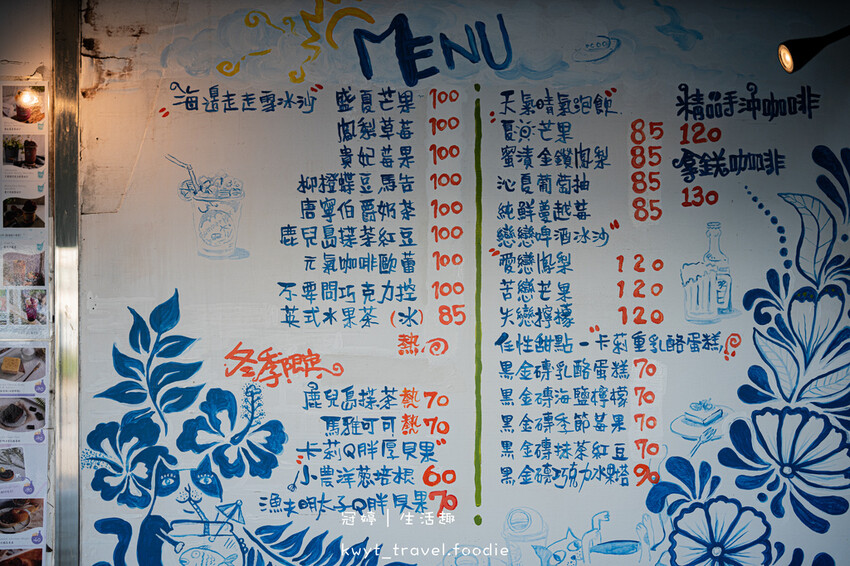 MENU
海邊走走雪冰沙 盛夏芒果 100
鳳梨草莓 100
貴妃莓果 100
柳橙蝶豆馬告 100
唐寧伯爵奶茶 100
鹿兒島抹茶紅豆 100
元氣咖啡歐蕾 100
不要問巧克力控 100
英式水果茶(冰) 85
熱
冬季限定
鹿兒島抹茶熱 70
馬雅可可熱 70
"卡莉Q胖厚貝果"
小農洋蔥培根 60
漁夫明太子Q胖貝果 70
"天氣晴氣泡飲"
夏沁芒果 85
蜜漬金鑽鳳梨 85
沁夏葡萄柚 85
純鮮蔓越莓 85
"戀戀啤酒冰沙"
愛戀鳳梨 120
苦戀芒果 120
失戀檸檬 120
任性甜點-卡莉重乳酪蛋糕
黑金磚乳酪蛋糕 70
黑金磚海鹽檸檬 70
黑金磚季節莓果 70
黑金磚抹茶紅豆 70
黑金磚巧克力水果塔 90
精品手沖咖啡
120
拿鐵咖啡
130
冠婷|生活趣
kwyt_travel.foodie